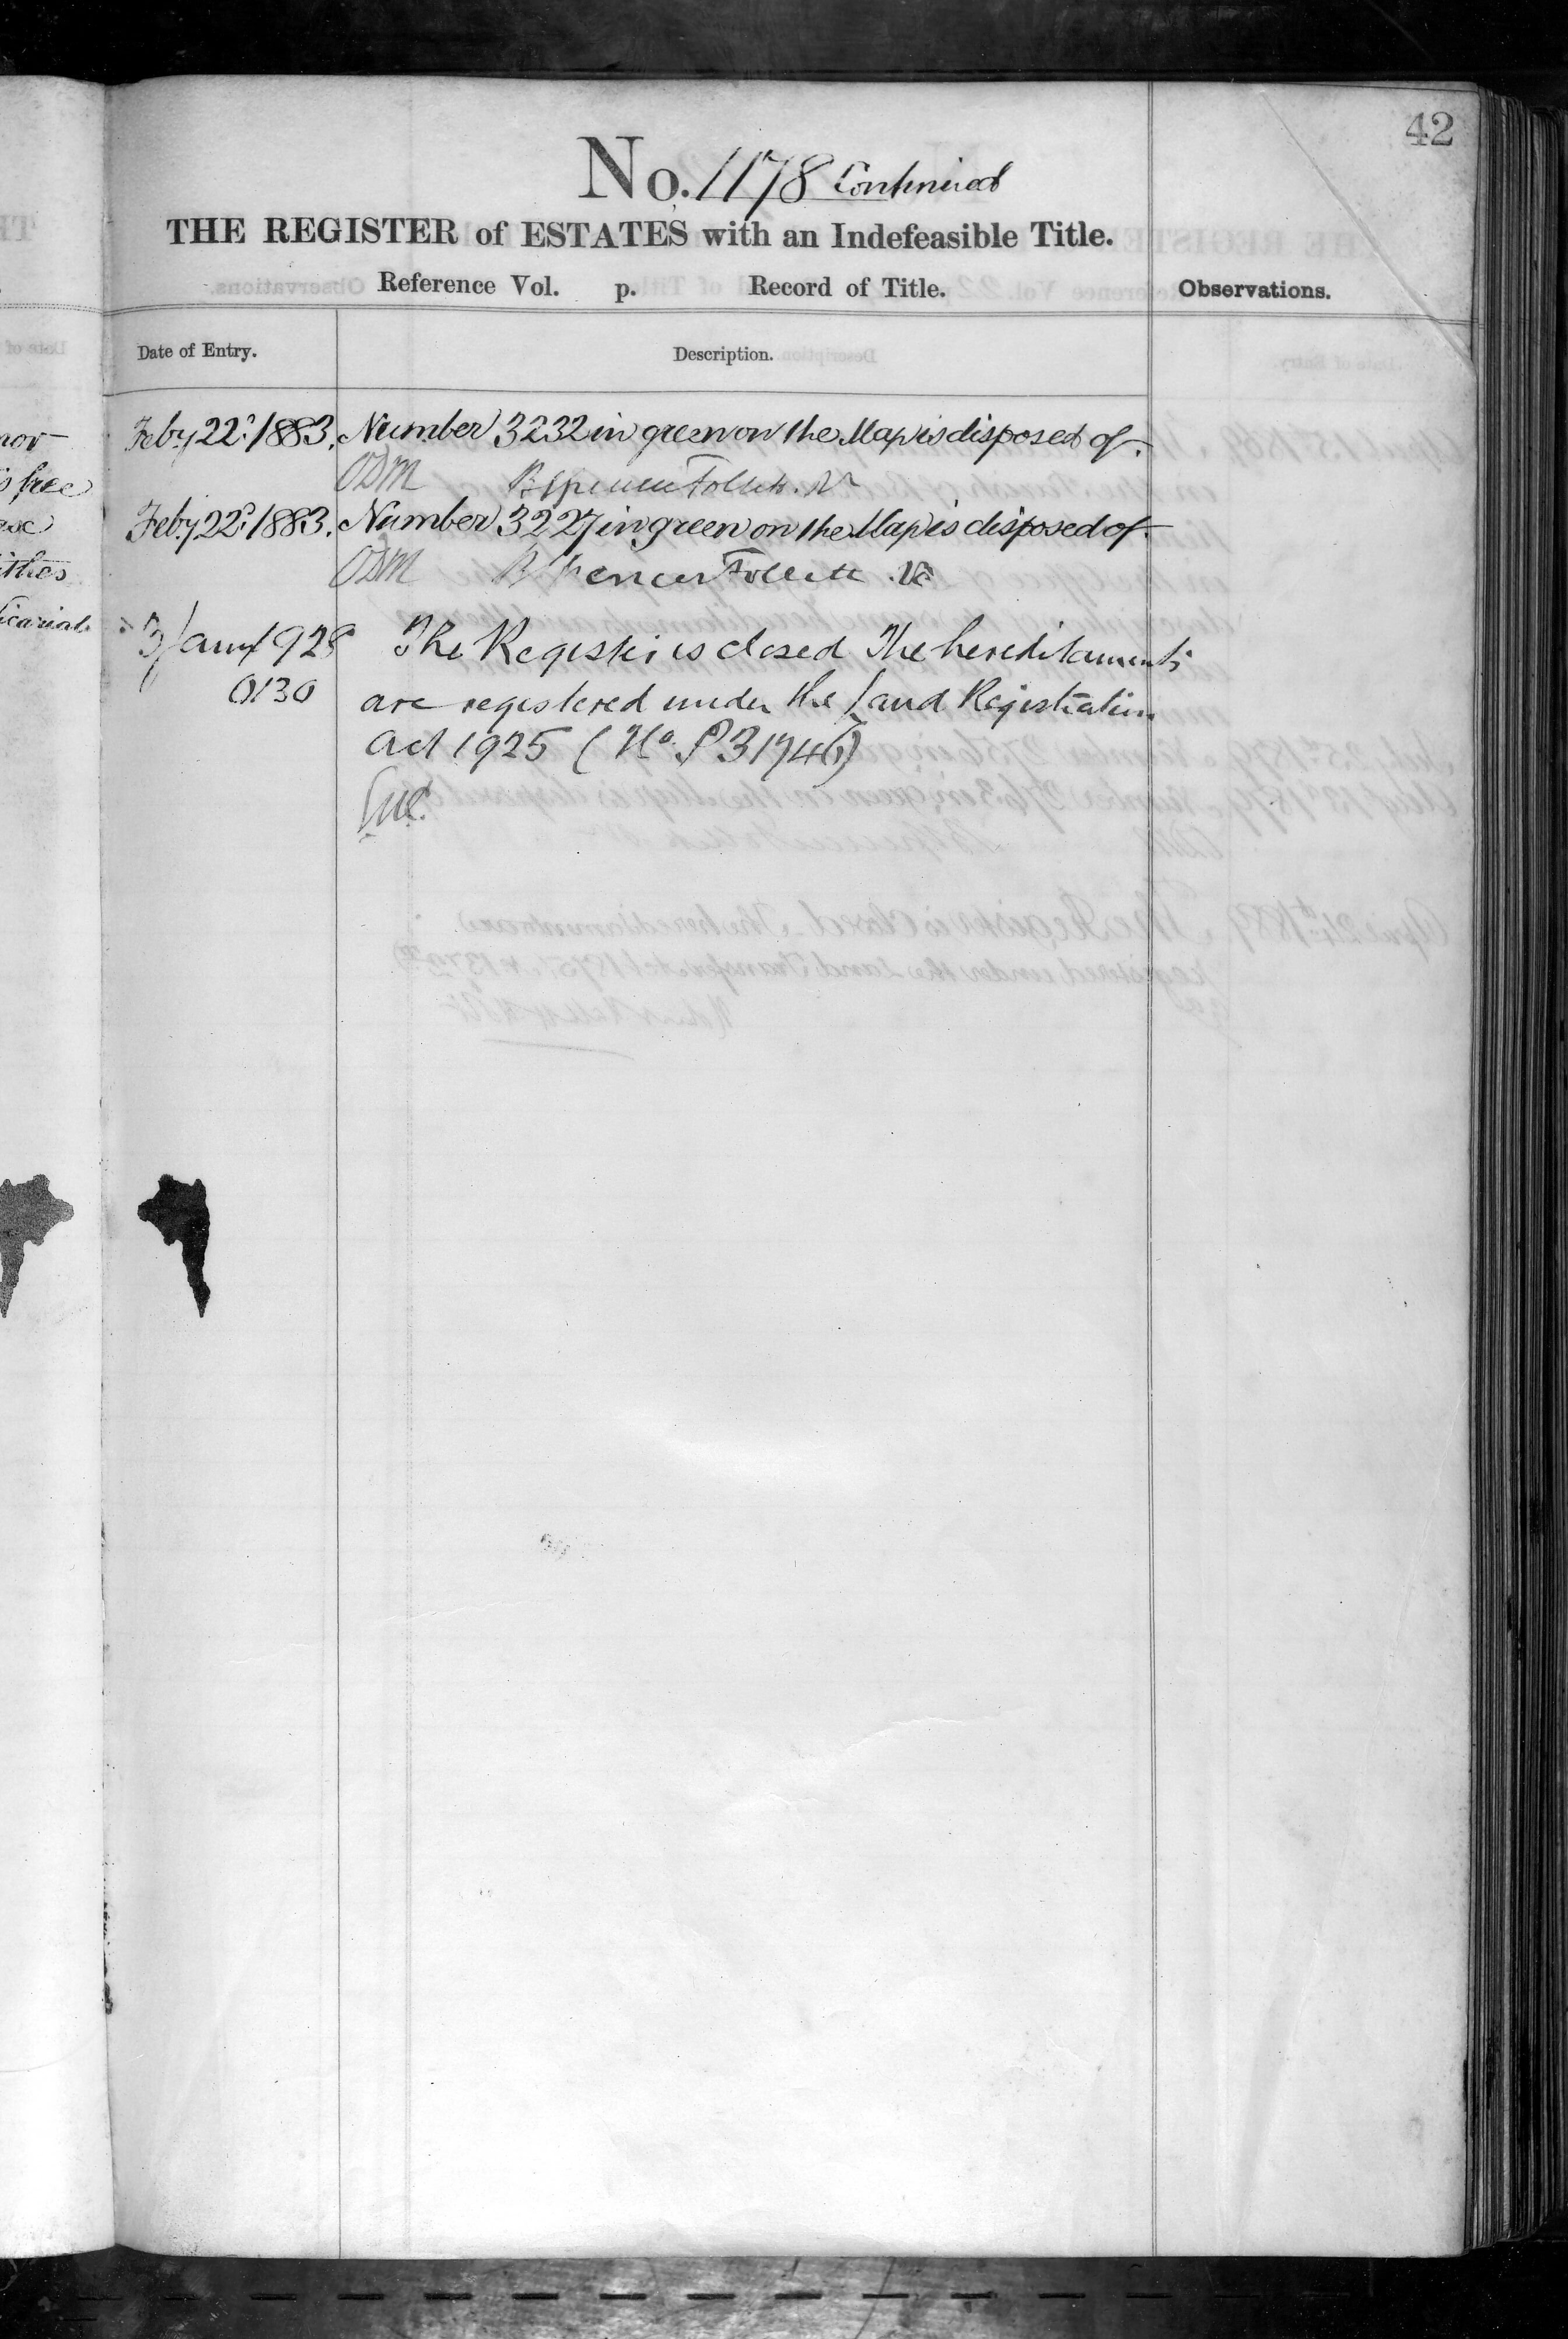 42
No. 1178 Continued
THE REGISTER of ESTATES with an Indefeasible Title.
Reference Vol. p. Record of Title.
Observations.
Date of Entry.
Description.
Feby 22d. 1883. Number 3232 in green on the Map is disposed of.
ODM B Spencer Follett. Rr
Feby 22d. 1883. Number 3227 in green on the Map is disposed of.
ODM B Spencer Follett
3 Jany 1928 The Register is closed The hereditaments
0130 are registered under the Land Registration
Act 1925 (No. P31746)
nor
is free
ithes
icarial